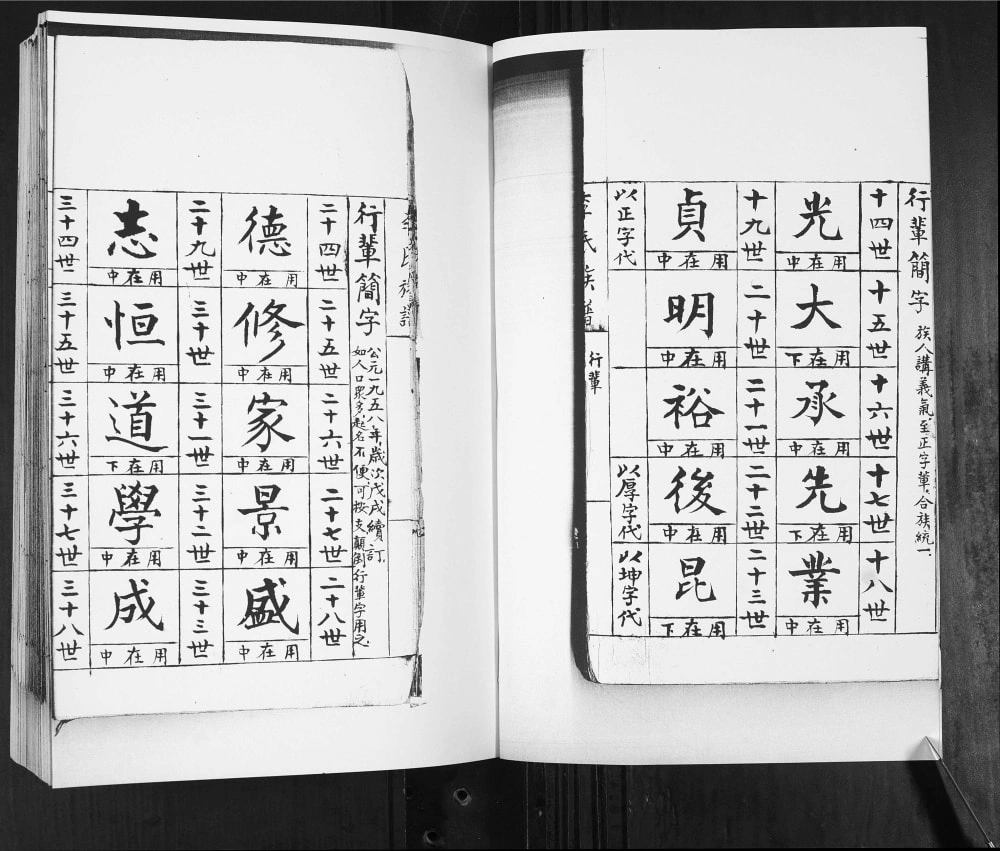 行輩簡字 族人講義氣,至正字輩,合族統一.
十四世 光 用在中
十五世 大 用在下
十六世 承 用在中
十七世 先 用在下
十八世 業 用在中
十九世 貞 用在中 以正字代
二十世 明 用在中
二十一世 裕 用在中
二十二世 後 用在中 以厚字代
二十三世 昆 用在下 以坤字代
李氏族譜
行輩
李氏族譜
行輩簡字 公元一九五八年,歲次戊戌續訂.
如人口眾多,起名不便,可按支顛倒行輩字用之
二十四世 德 用在中
二十五世 修 用在中
二十六世 家 用在中
二十七世 景 用在中
二十八世 盛 用在中
二十九世 志 用在中
三十世 恒 用在中
三十一世 道 用在下
三十二世 學 用在中
三十三世 成 用在中
三十四世
三十五世
三十六世
三十七世
三十八世